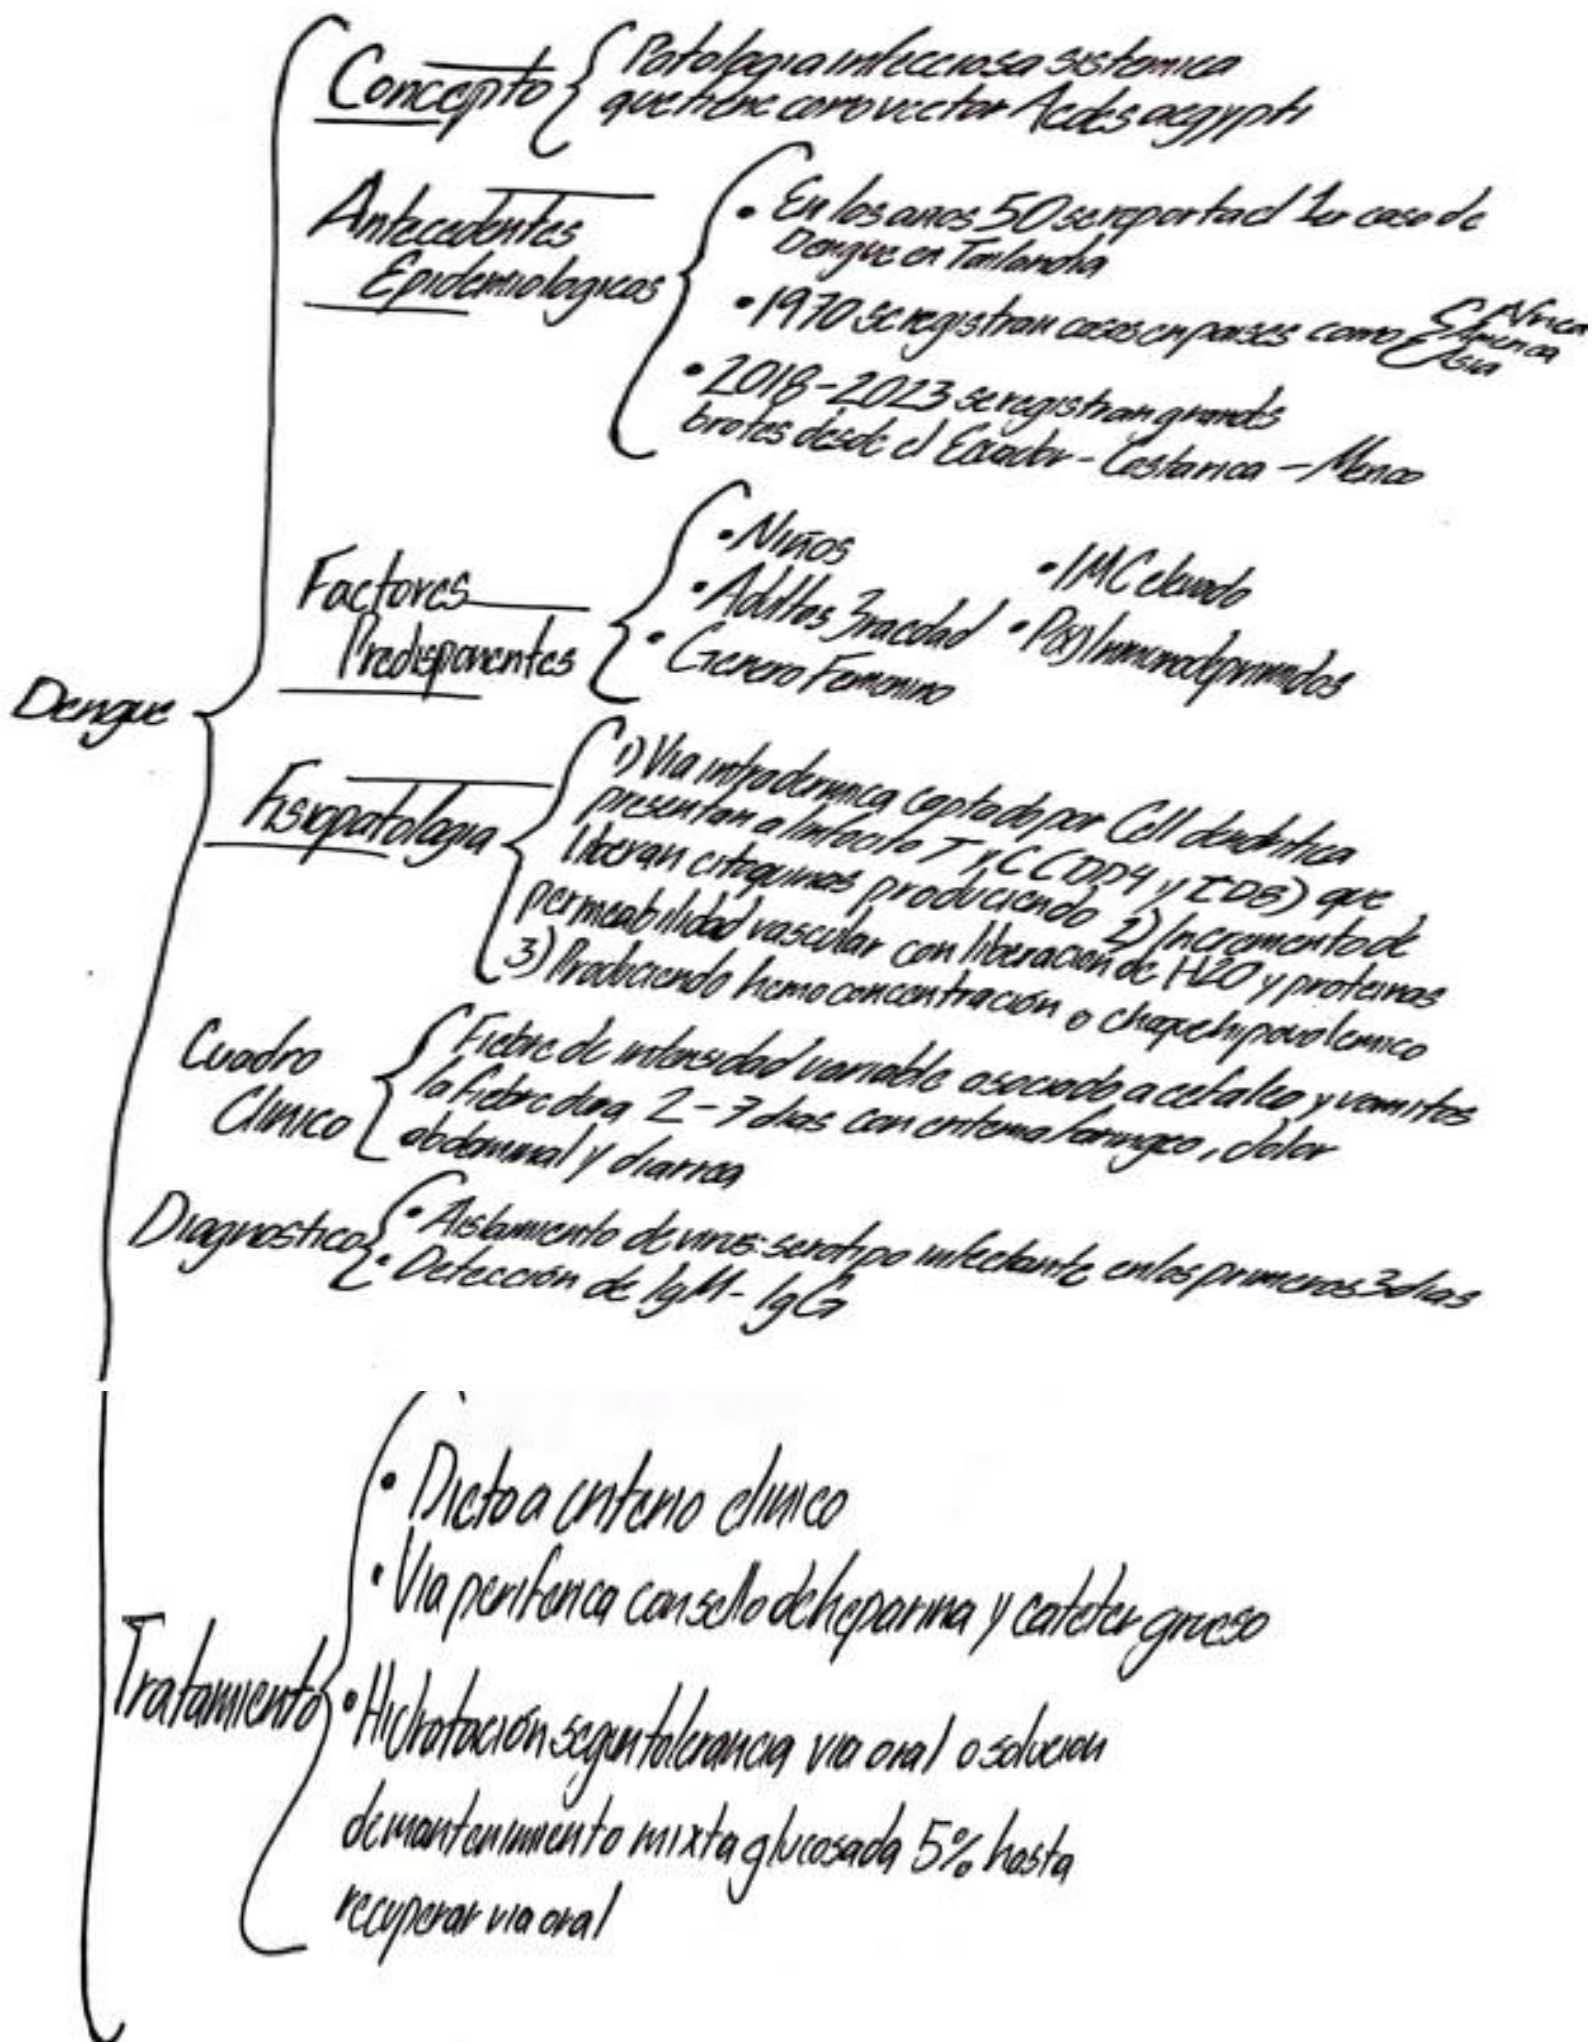 Dengue
Concepto
Patologia infecciosa sistemica
que tiene como vector Aedes aegypti
Antecedentes
Epidemiologicos
• En los años 50 se reporta el 1er caso de
Dengue en Tailandia
• 1970 se registran casos en paises como Africa
America
Asia
• 2018-2023 se registran grandes
brotes desde el Ecuador - Costarica - Mexico
Factores
Predisponentes
• Niños
• Adultos 3ra edad
• Genero Femenino
• IMC elevado
• P(x) Inmunodeprimidos
Fisiopatologia
1) Via intradermica captado por Cell dendritica
presentan a linfocito T y C (CD4 y CD8) que
liberan citoquinas produciendo 2) Incremento de
permeabilidad vascular con liberación de H2O y proteinas
3) Produciendo hemoconcentración o choque hipovolemico
Cuadro
Clinico
Fiebre de intensidad variable asociado a cefalea y vomitos
la fiebre dura 2-7 dias con eritema faringeo, dolor
abdominal y diarrea
Diagnostico
• Aislamiento de virus: serotipo infectante en los primeros 3 dias
• Detección de IgM - IgG
Tratamiento
• Dieta a criterio clinico
• Via periferica con sello de heparina y cateter grueso
• Hidratación segun tolerancia via oral o solucion
de mantenimiento mixta glucosada 5% hasta
recuperar via oral